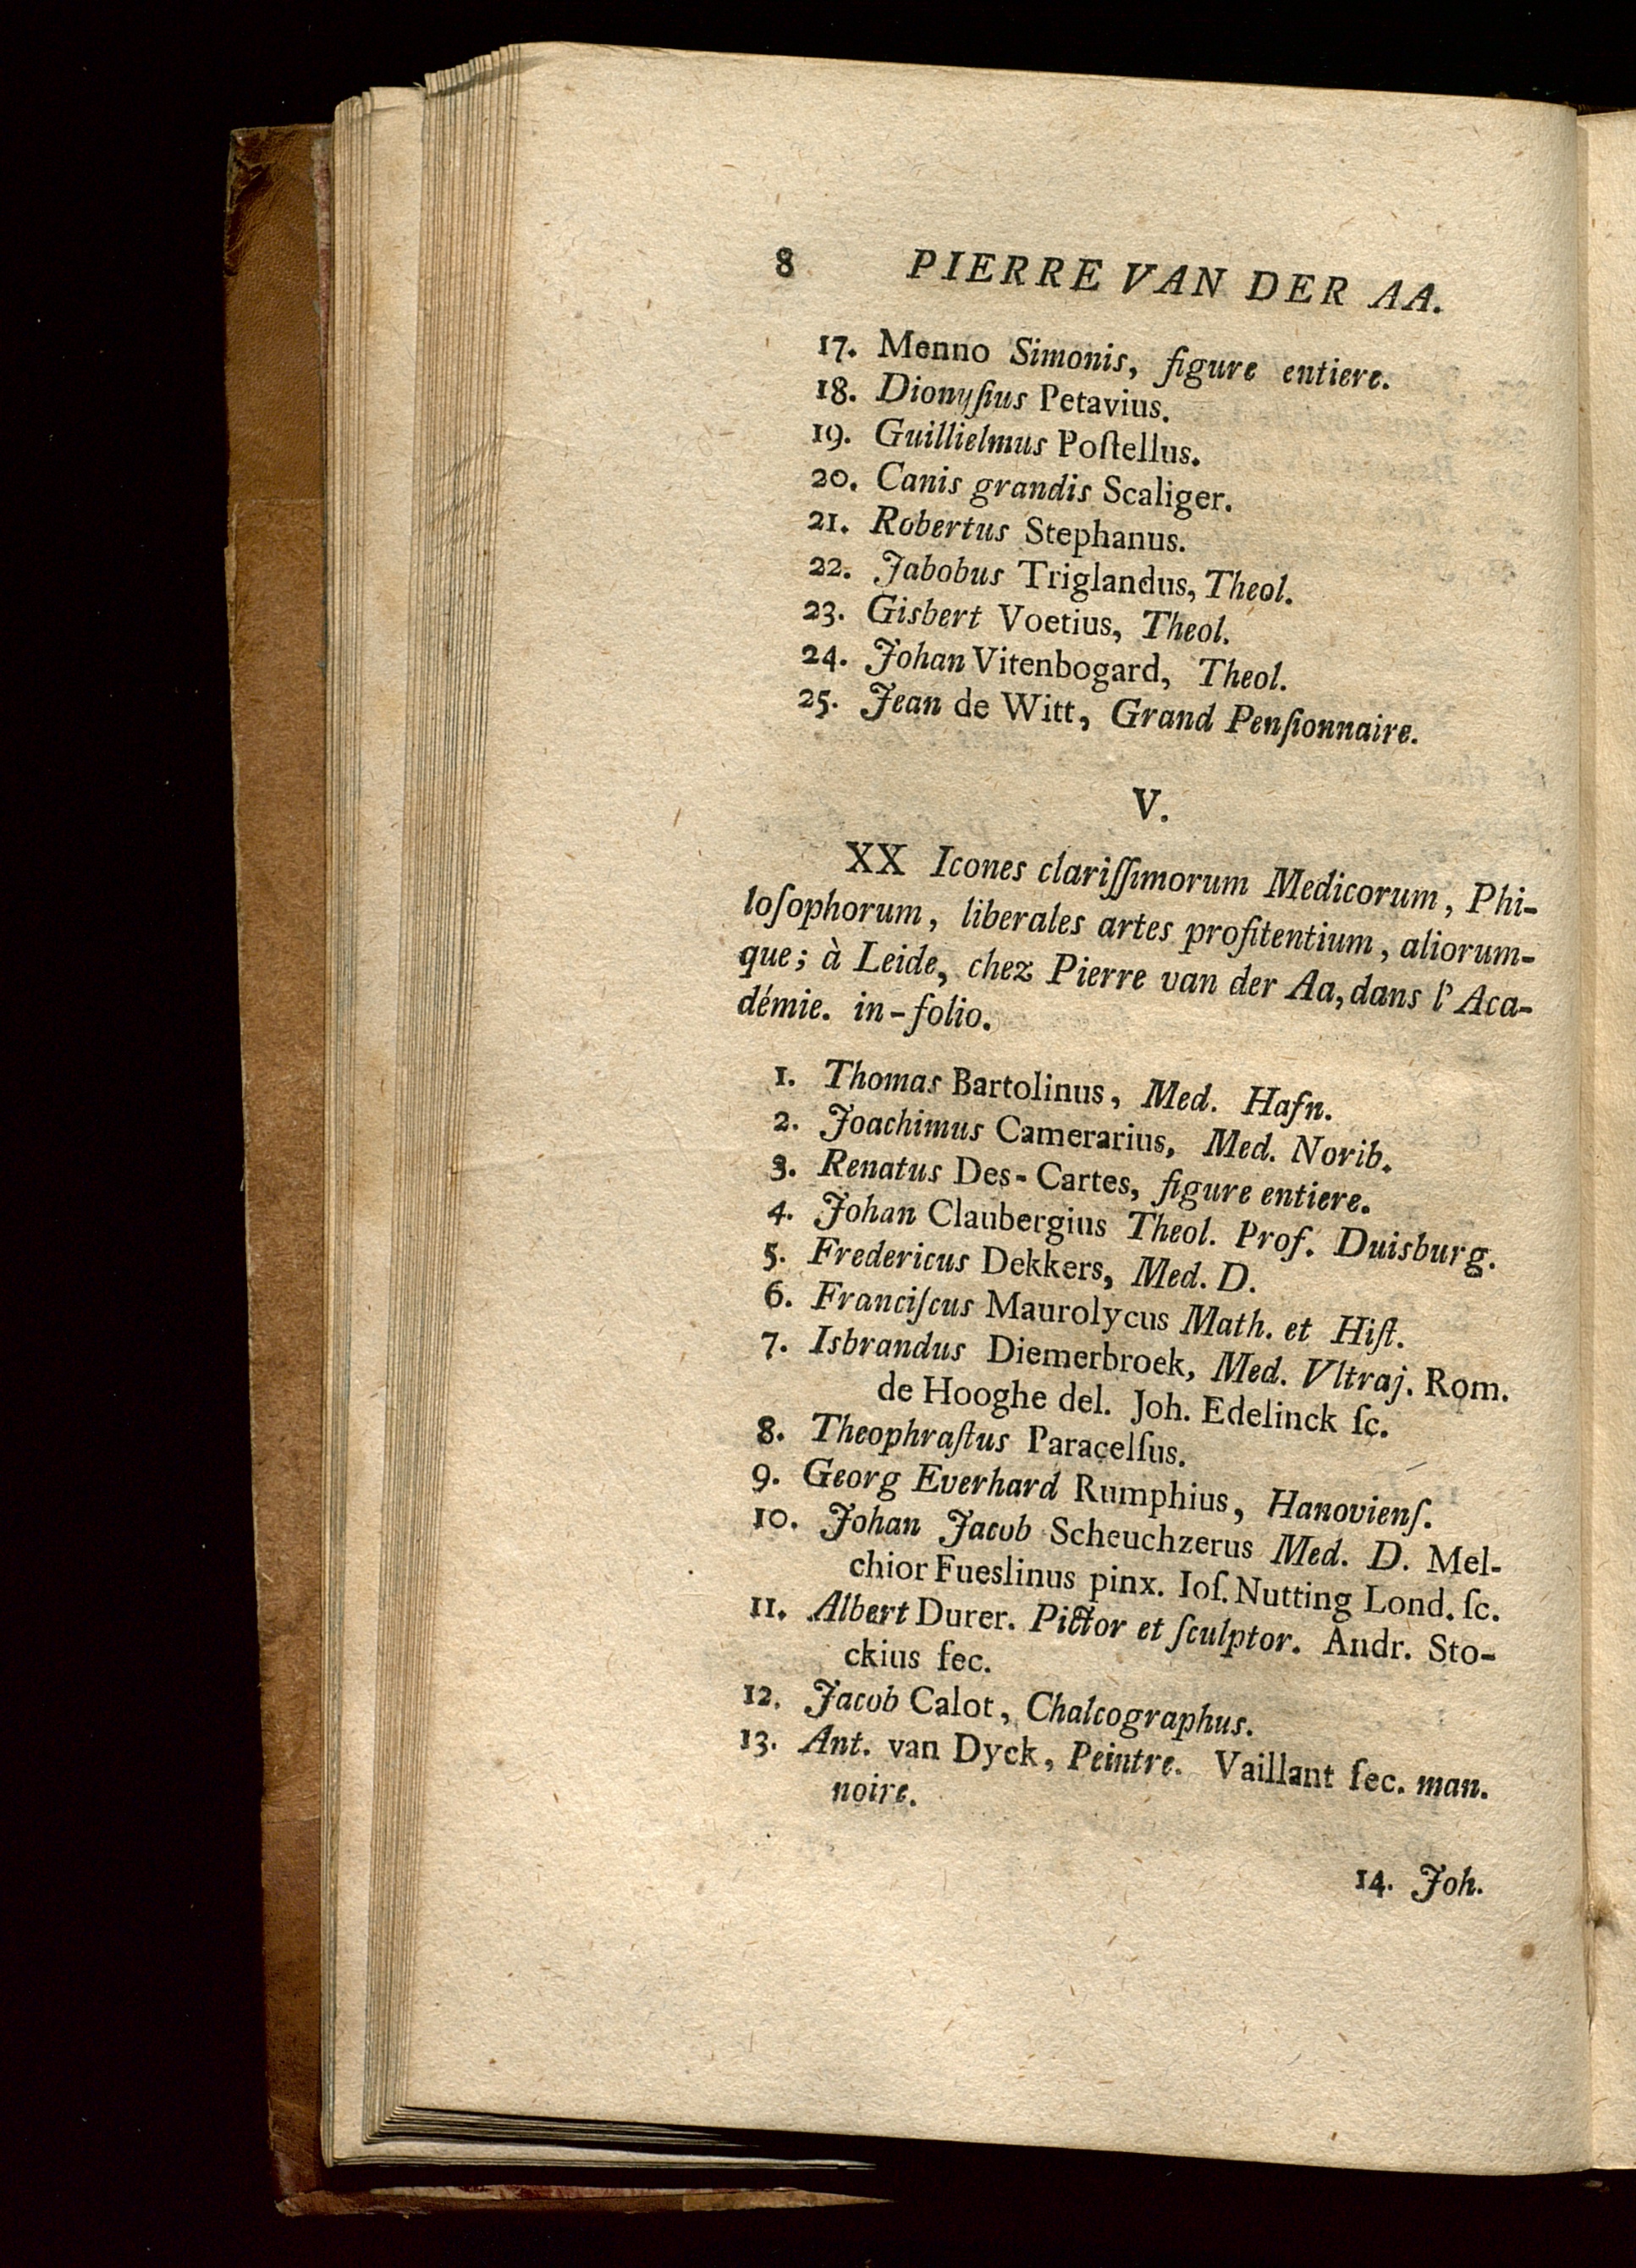 8 PIERRE VAN DER AA.
17. Menno Simonis, figure entiere.
18. Dionyſius Petavius.
19. Guillielmus Poſtellus.
20. Canis grandis Scaliger.
21. Robertus Stephanus.
22. Jabobus Triglandus, Theol.
23. Gisbert Voetius, Theol.
24. Johan Vitenbogard, Theol.
25. Jean de Witt, Grand Penſionnaire.
V.
XX Icones clariſſimorum Medicorum, Phi-
loſophorum, liberales artes profitentium, aliorum-
que; à Leide, chez Pierre van der Aa, dans l'Aca-
démie. in-folio.
1. Thomas Bartolinus, Med. Hafn.
2. Joachimus Camerarius, Med. Norib.
3. Renatus Des-Cartes, figure entiere.
4. Johan Claubergius Theol. Prof. Duisburg.
5. Fredericus Dekkers, Med. D.
6. Franciſcus Maurolycus Math. et Hiſt.
7. Isbrandus Diemerbroek, Med. Vltraj. Rom.
de Hooghe del. Joh. Edelinck ſc.
8. Theophraſtus Paracelſus.
9. Georg Everhard Rumphius, Hanovienſ.
10. Johan Jacob Scheuchzerus Med. D. Mel-
chior Fueslinus pinx. Ioſ. Nutting Lond. ſc.
11. Albert Durer. Pictor et ſculptor. Andr. Sto-
ckius fec.
12. Jacob Calot, Chalcographus.
13. Ant. van Dyck, Peintre. Vaillant fec. man.
noire.
14. Joh.